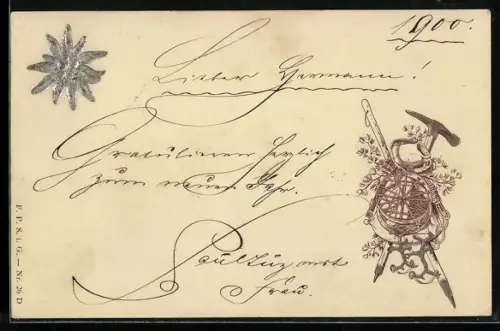 1900.
Lieber Hermann!
Gratulieren herzlich
zum neuen Jahr.
Paul und
Frau.
F. P. S. i. G. — Nr. 26 D